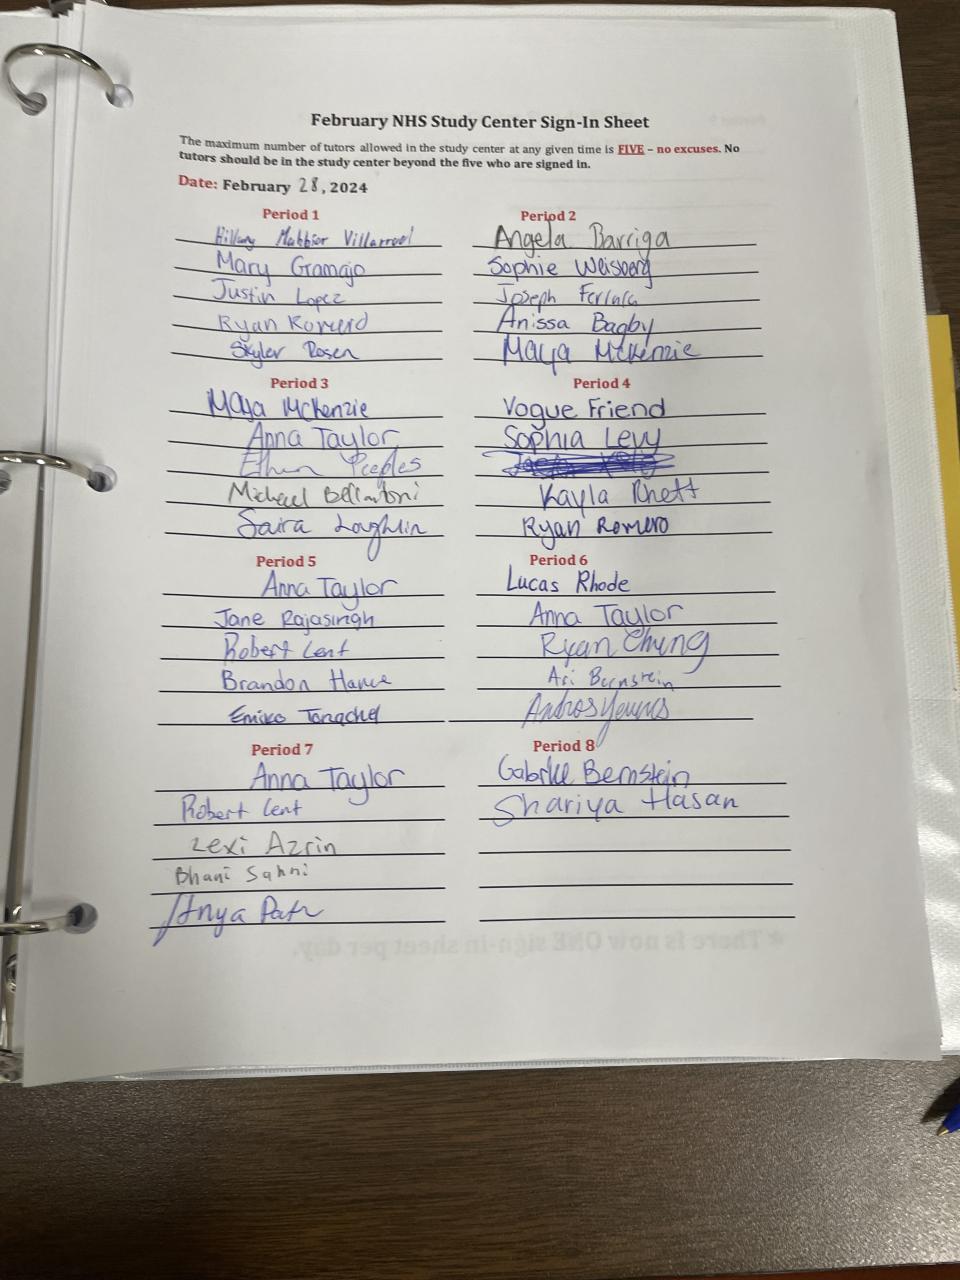 February NHS Study Center Sign-In Sheet
The maximum number of tutors allowed in the study center at any given time is FIVE – no excuses. No
tutors should be in the study center beyond the five who are signed in.
Date: February 28, 2024
Period 1
Hillary Villarroel
Mary Gramajo
Justin Lopez
Ryan Romero
Skyler Rosen
Period 2
Angela Barriga
Sophie Weisberg
Joseph
Anissa Bagby
Maya McKenzie
Period 3
Maya McKenzie
Anna Taylor
Ethan Peeples
Michael Bellantoni
Saira Loughlin
Period 4
Vogue Friend
Sophia Levy
Kayla Rhett
Ryan Romero
Period 5
Anna Taylor
Jane Rajasingh
Robert Lent
Brandon Hance
Emiko
Period 6
Lucas Rhode
Anna Taylor
Ryan Chung
Ari Bernstein
Andros Younes
Period 7
Anna Taylor
Robert Lent
Lexi Azrin
Bhani Sahni
Period 8
Gabrielle Bernstein
Shariya Hasan
* There is now ONE sign-in sheet per day.